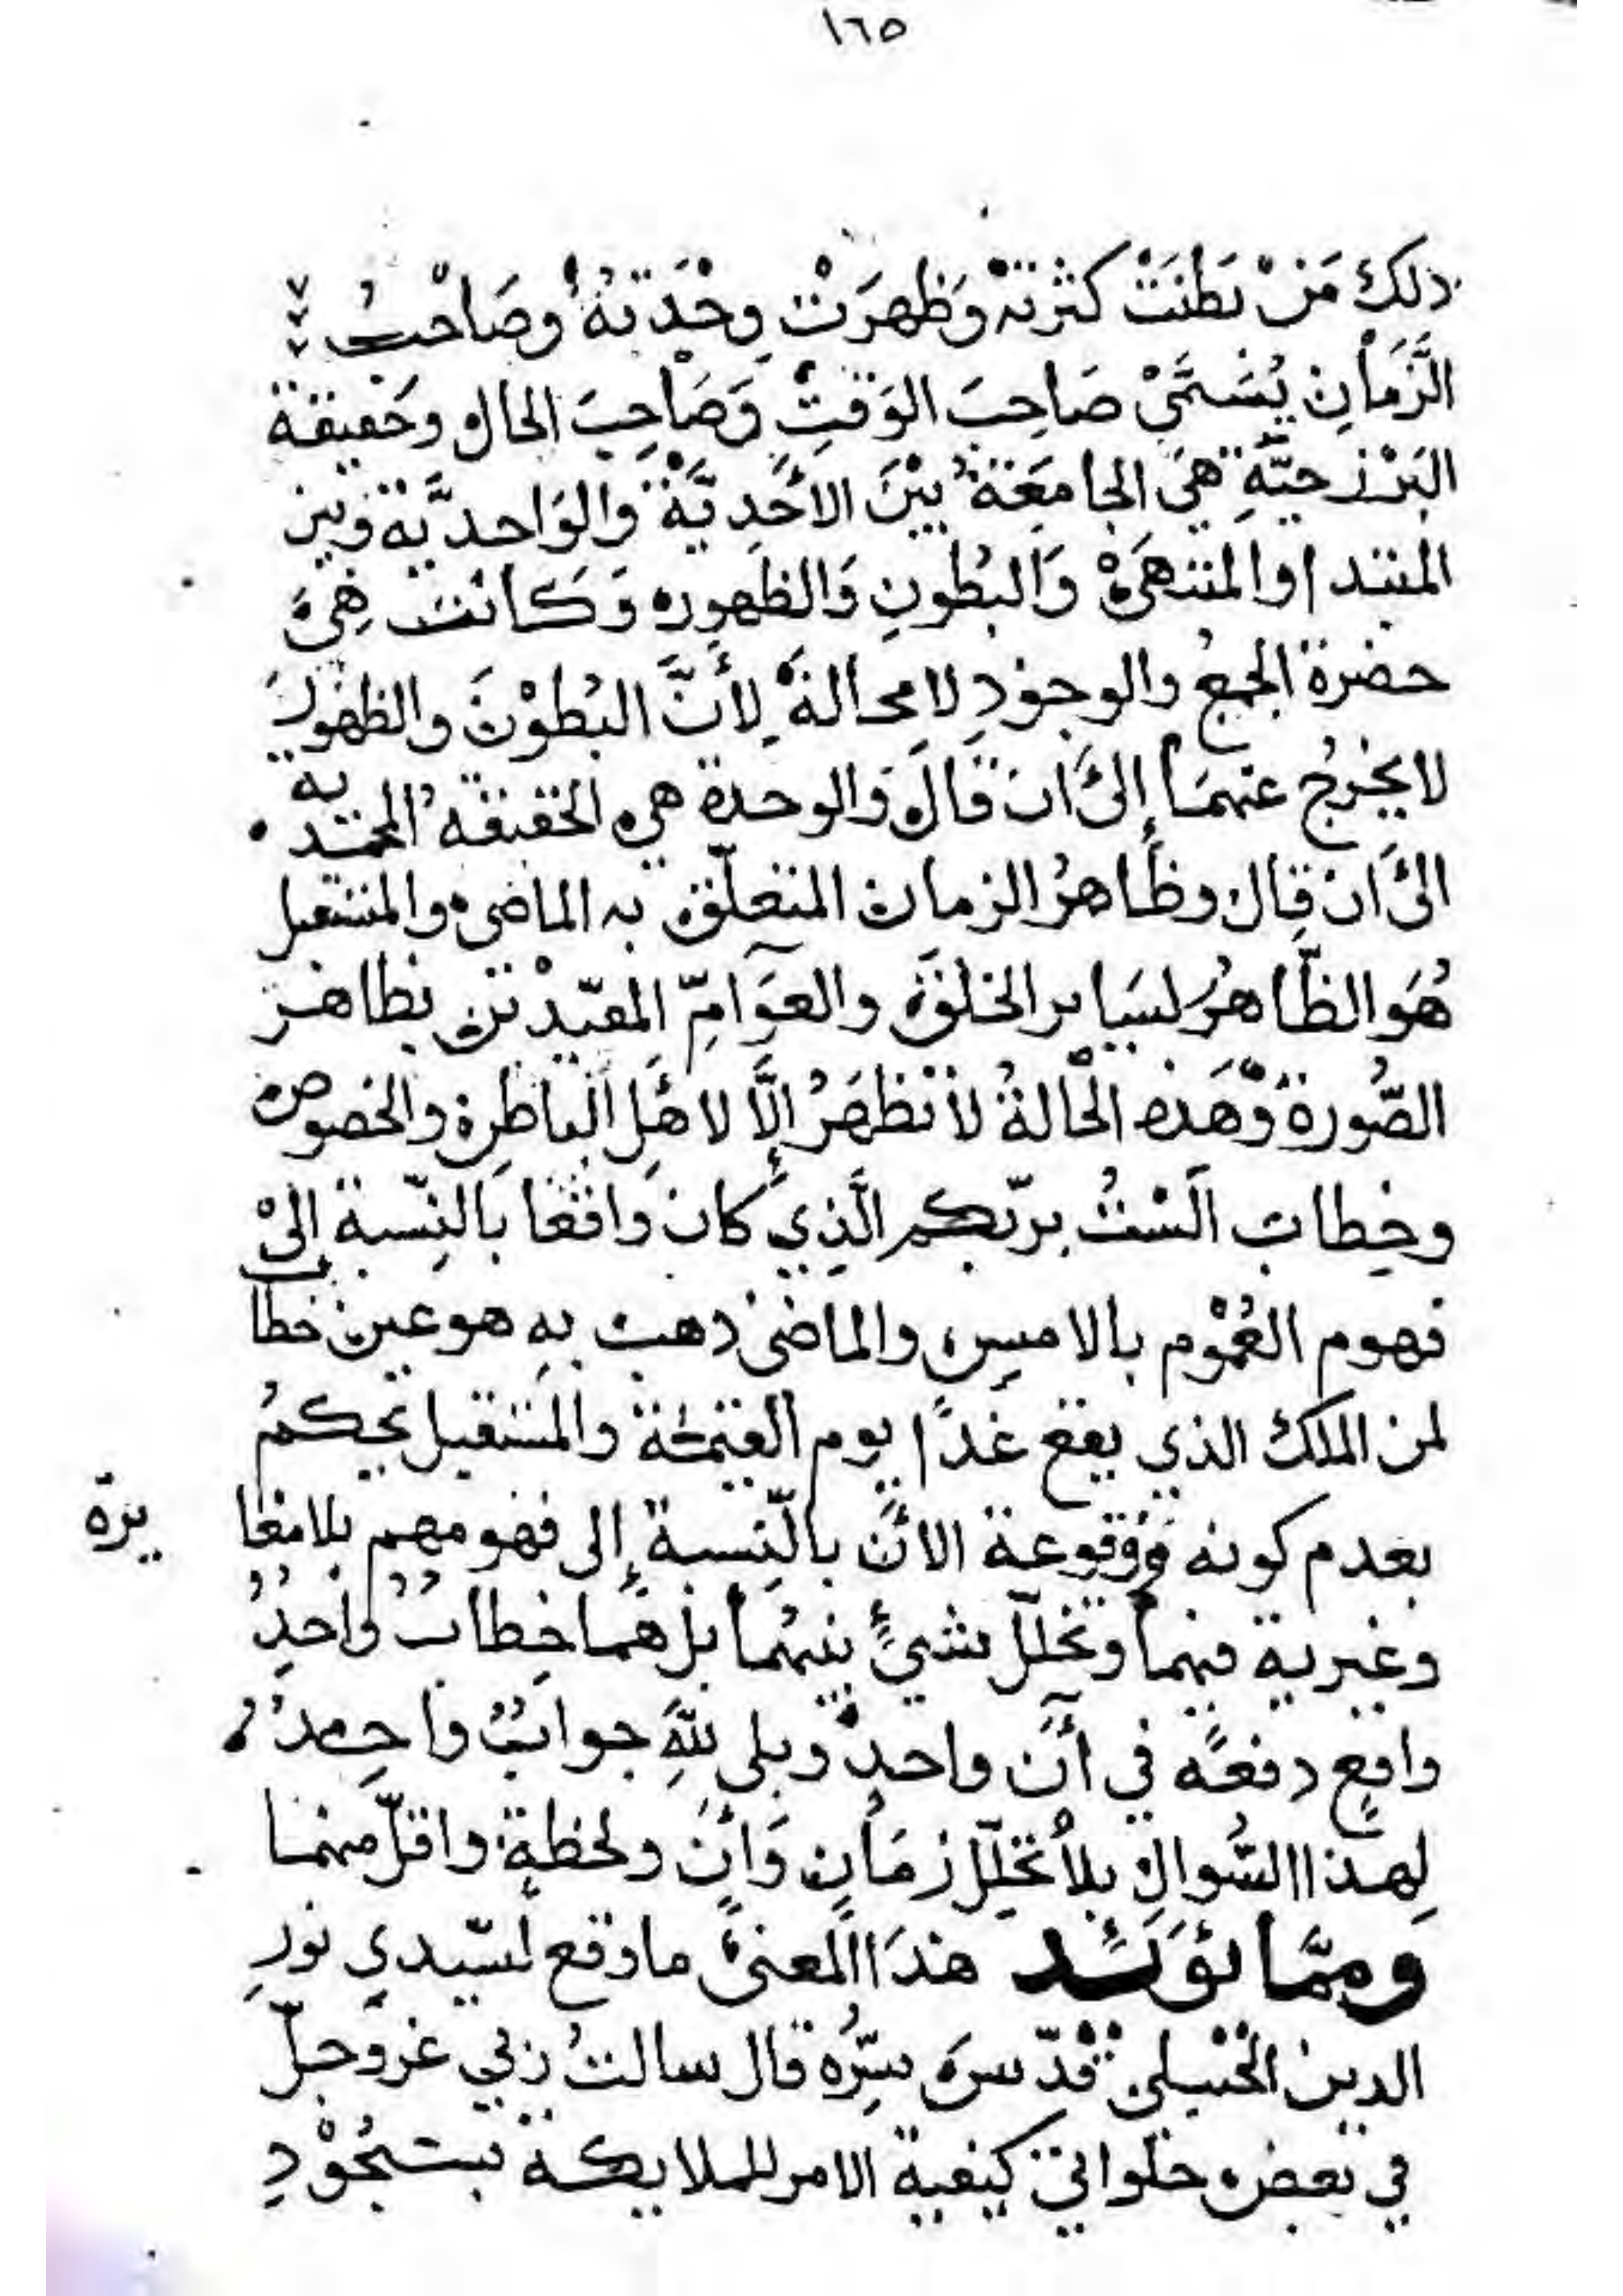 ١٦٥
ذلك مَنْ بَطَنَتْ كثرته وَظَهرَتْ وِحْدَتهُ وصَاحبُ
الزَّمَانِ يُسَمَّىْ صَاحِبَ الوَقتِ وَصَاحِبَ الحال وحَقيقة
البَرْزخيَّةِ هيَ الجامعَةُ بيْنَ الأحَدِيَّة والوَاحديَّة وبين
المبتدا والمنتهَى وَالبُطونِ وَالظهورِ وَكانت هِيَ
حضرة الجمع والوجودِ لا محالةَ لأنَّ البُطوْنَ والظهورَ
لا يخرجُ عنهمَا إلى أن قَالَ وَالوحدة هي الحقيقة المحمّديه
الى ان قال وظاهرُ الزمان المتعلّق به الماضي والمستقبل
هُوَ الظّاهرُ لسَاير الخلق والعوَامِّ المقيّدْين بظاهر
الصُّورة وَهَذه الْحالةُ لا تظهَرُ إلَّا لاهَلِ الباطن والخصوص
وخِطاب اَلسْتُ بربّكم الَّذِي كان واقعا بَالنِّسبة إلىْ
فهوم العُمْوم بالامسِ والماضى ذهب بهِ هو عين خطاب
لمن الملك الذي يقع غدًا يوم القيمة والمستقبل بحكمُ
بعدم كونه ووقوعة الآن بالنِّسبة إلى فهومهم بلا مغايرة
وغيرية فيهما وتخلّل شيءٍ بينهُما بل هما خِطابٌ واحدٌ
واقع دفعةً في آن واحدٍ وبلى للهِ جوابٌ واحِدٌ
لِهذا السُّوالِ بلا تخلّلِ زمَانٍ وَآنٍ ولحظةٍ واقلّ منهما
وَممَّا يؤيّد هذَا المعنى ما وقع لسّيدي نورِ
الدين قدّسَ سِرُّه قال سالتُ ربي عزوجلّ
في بعض خلواتي كيفية الامر للملايكة بسجُوْدِ